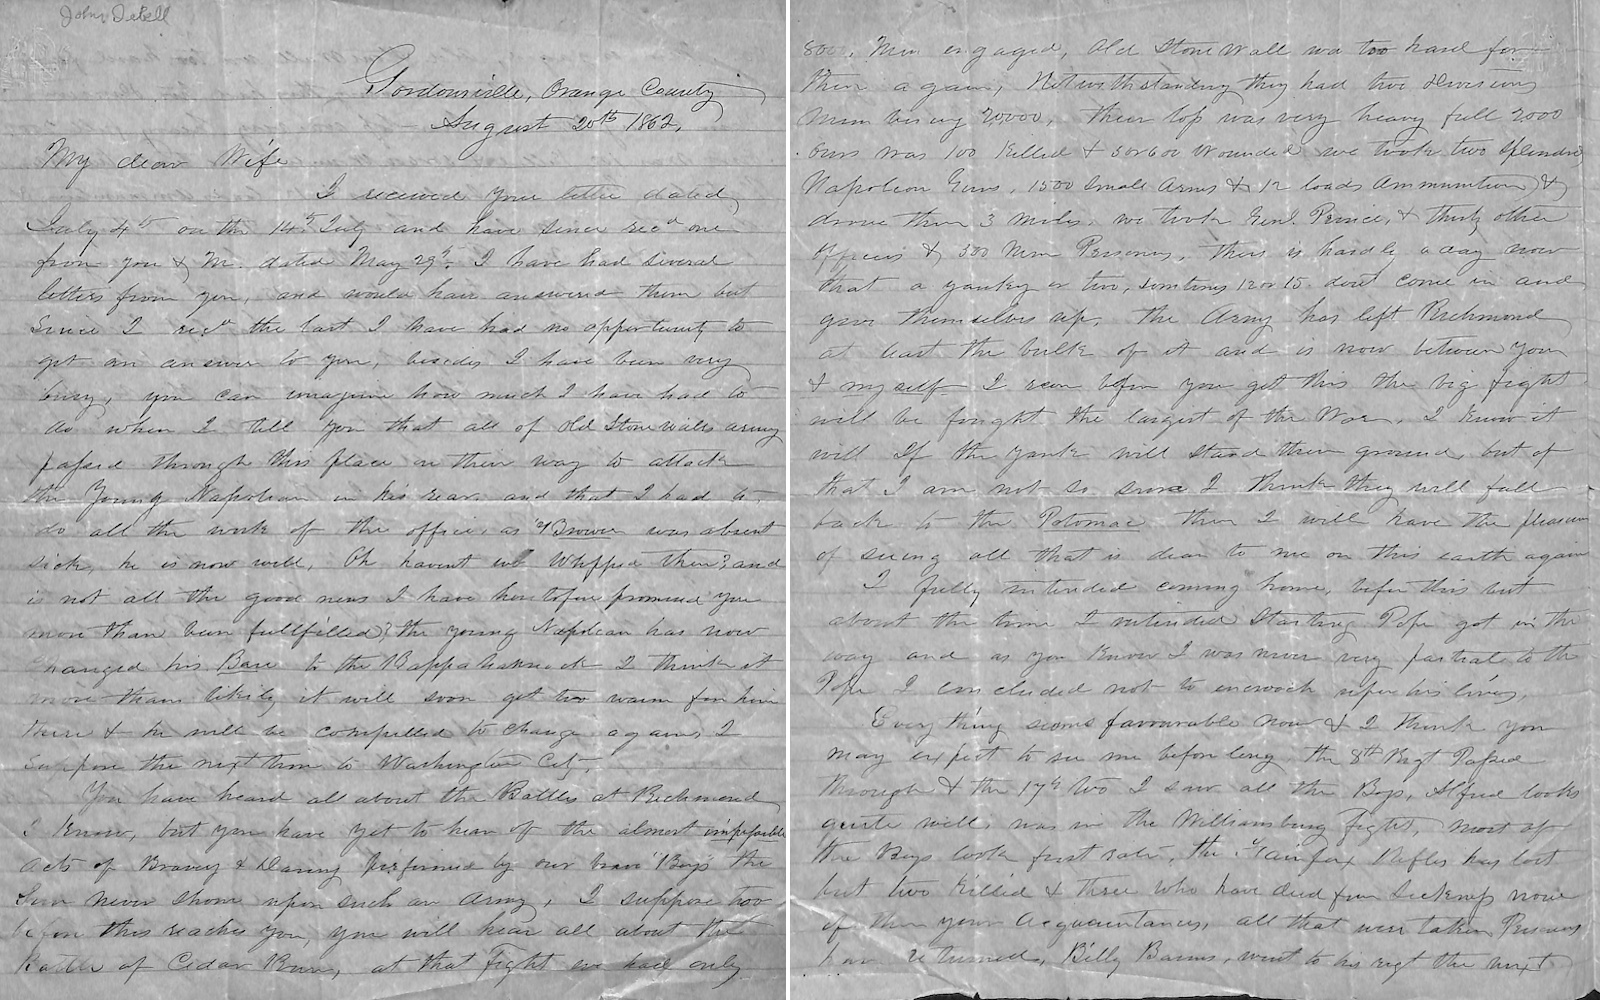 John DeBell
Gordonsville, Orange County
August 20th 1862.
My dear Wife
I received your letter dated
July 4th on the 14th July and have since recd one
from you & M. dated May 29th. I have had several
letters from you, and would have answered them but
Since I recd the last I have had no opportunity to
get an answer to you, besides I have been very
busy, you can imagine how much I have had to
do when I tell you that all of Old Stonewalls army
passed through this place on their way to attack
the Young Napoleon in his rear and that I had to
do all the work of the office, as Brown was absent
sick, he is now well, Oh havent we Whipped them? and
is not all the good news I have heretofore promised you
more than been fullfilled? the young Napolean has now
changed his Base to the Rappahannock I think it
more than likely it will soon get too warm for him
there & he will be compelled to change again, I
suppose the next time to Washington City.
You have heard all about the Battles at Richmond
I know, but you have yet to hear of the almost impossible
acts of Bravery & Daring performed by our brave "Boys" the
Sun never shone upon such an Army, I suppose too
before this reaches you, you will hear all about the
Battle of Cedar Run, at that Fight we had only
8000, Men engaged, Old Stone Wall was too hard for
them again, Notwithstanding they had two divisions
Men being 20,000, their loss was very heavy full 2,000
Ours was 100 Killed & 500 or 600 Wounded we took two splendid
Napoleon Guns, 1500 Small Arms & 12 loads Ammunition &
drove them 3 miles, we took Genl. Prince, & thirty other
Officers & 300 Men Prisoners, there is hardly a day now
that a yankey or two, sometimes 12 or 15 dont come in and
give themselves up, The Army has left Richmond
at least the bulk of it and is now between you
& myself I recon before you get this the big fight
will be fought the largest of the War, I know it
will If the yanks will stand their ground, but of
that I am not so sure I think they will fall
back to the Potomac then I will have the pleasure
of seeing all that is dear to me on this earth again
I fully intended coming home, before this but
about the time I intended Starting Pope got in the
way and as you know I was never very partial to the
Pope I concluded not to encroach upon his lines,
Every thing seems favourable now & I think you
may expect to see me before long, the 8th Regt Passed
through & the 17th two I saw all the Boys, Alfred looks
quite well, was in the Williamsburg fight, most of
the Boys look first rate, the Fairfax Rifles has lost
but two killed & three who have died from sickness none
of them your Acquaintances, all that were taken Prisoners
have returned, Billy Barnes, went to his regt the next